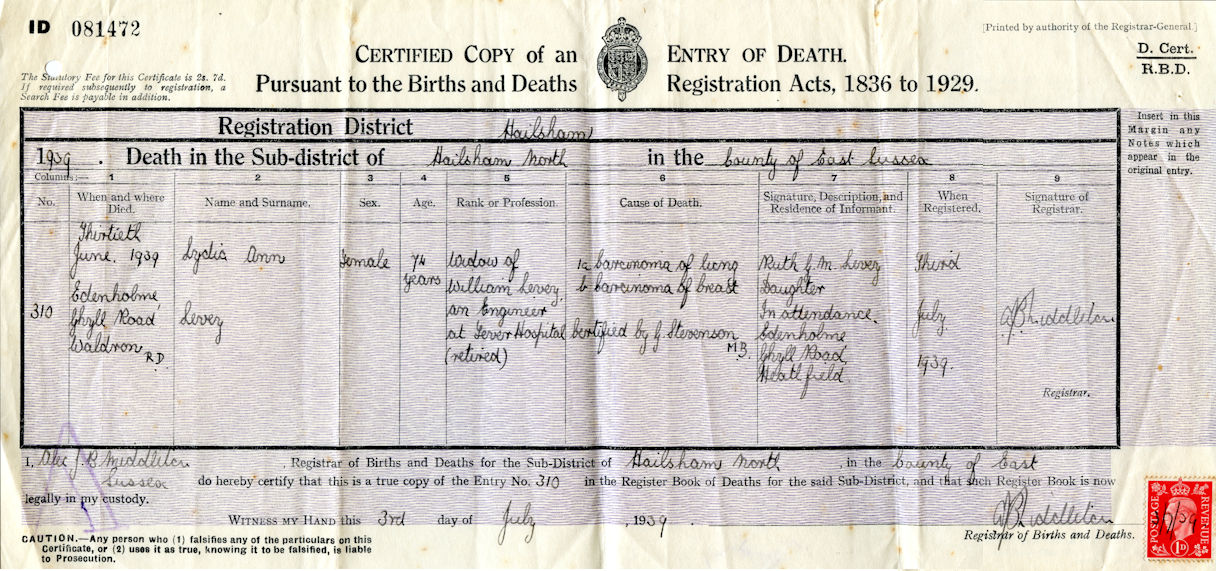 ID 081472
[Printed by authority of the Registrar-General.]
CERTIFIED COPY OF AN ENTRY OF DEATH.
D. Cert.
R.B.D.
The Statutory Fee for this Certificate is 2s. 7d.
If required subsequently to registration, a
Search Fee is payable in addition.
Pursuant to the Births and Deaths Registration Acts, 1836 to 1929.
Registration District Hailsham
Insert in this
Margin any
Notes which
appear in the
original entry.
1939. Death in the Sub-district of Hailsham North in the County of East Sussex
Columns:— 1 2 3 4 5 6 7 8 9
No.
When and where
Died.
Name and Surname.
Sex.
Age.
Rank or Profession.
Cause of Death.
Signature, Description, and
Residence of Informant.
When
Registered.
Signature of
Registrar.
310
Thirtieth
June. 1939
Edenholme,
Ghyll Road
Waldron,
R.D
Lydia Ann
Levey
Female
74
years
Widow of
William Levey,
an Engineer
at Fever Hospital
(retired)
1a Carcinoma of lung
b Carcinoma of breast
Certified by G Stevenson
M.B.
Ruth G. M. Levey
Daughter
In attendance.
Edenholme
Ghyll Road,
Heathfield
Third
July
1939.
Middleton
Registrar.
I, Alec J. B Middleton, Registrar of Births and Deaths for the Sub-District of Hailsham North, in the County of East
Sussex do hereby certify that this is a true copy of the Entry No. 310 in the Register Book of Deaths for the said Sub-District, and that such Register Book is now
legally in my custody.
WITNESS MY HAND this 3rd day of July, 1939.
Middleton
Registrar of Births and Deaths.
CAUTION.—Any person who (1) falsifies any of the particulars on this
Certificate, or (2) uses it as true, knowing it to be falsified, is liable
to Prosecution.
POSTAGE REVENUE
1D